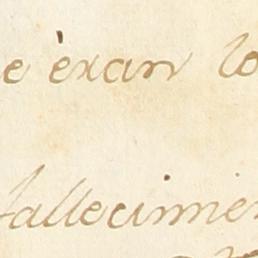 e èxan lo
fallecimien